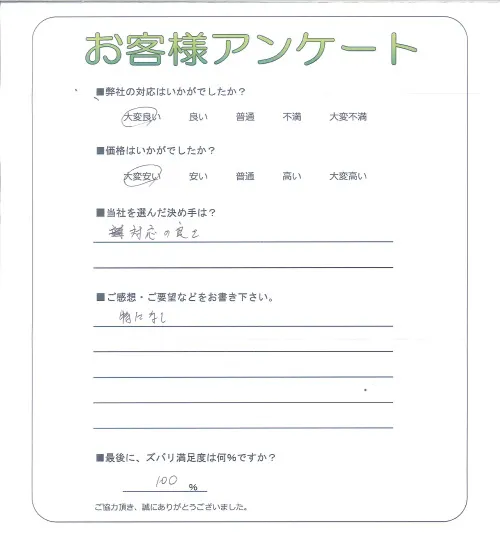 お客様アンケート
■弊社の対応はいかがでしたか？
大変良い 良い 普通 不満 大変不満
■価格はいかがでしたか？
大変安い 安い 普通 高い 大変高い
■当社を選んだ決め手は？
対応の良さ
■ご感想・ご要望などをお書き下さい。
特になし
■最後に、ズバリ満足度は何％ですか？
100 ％
ご協力頂き、誠にありがとうございました。